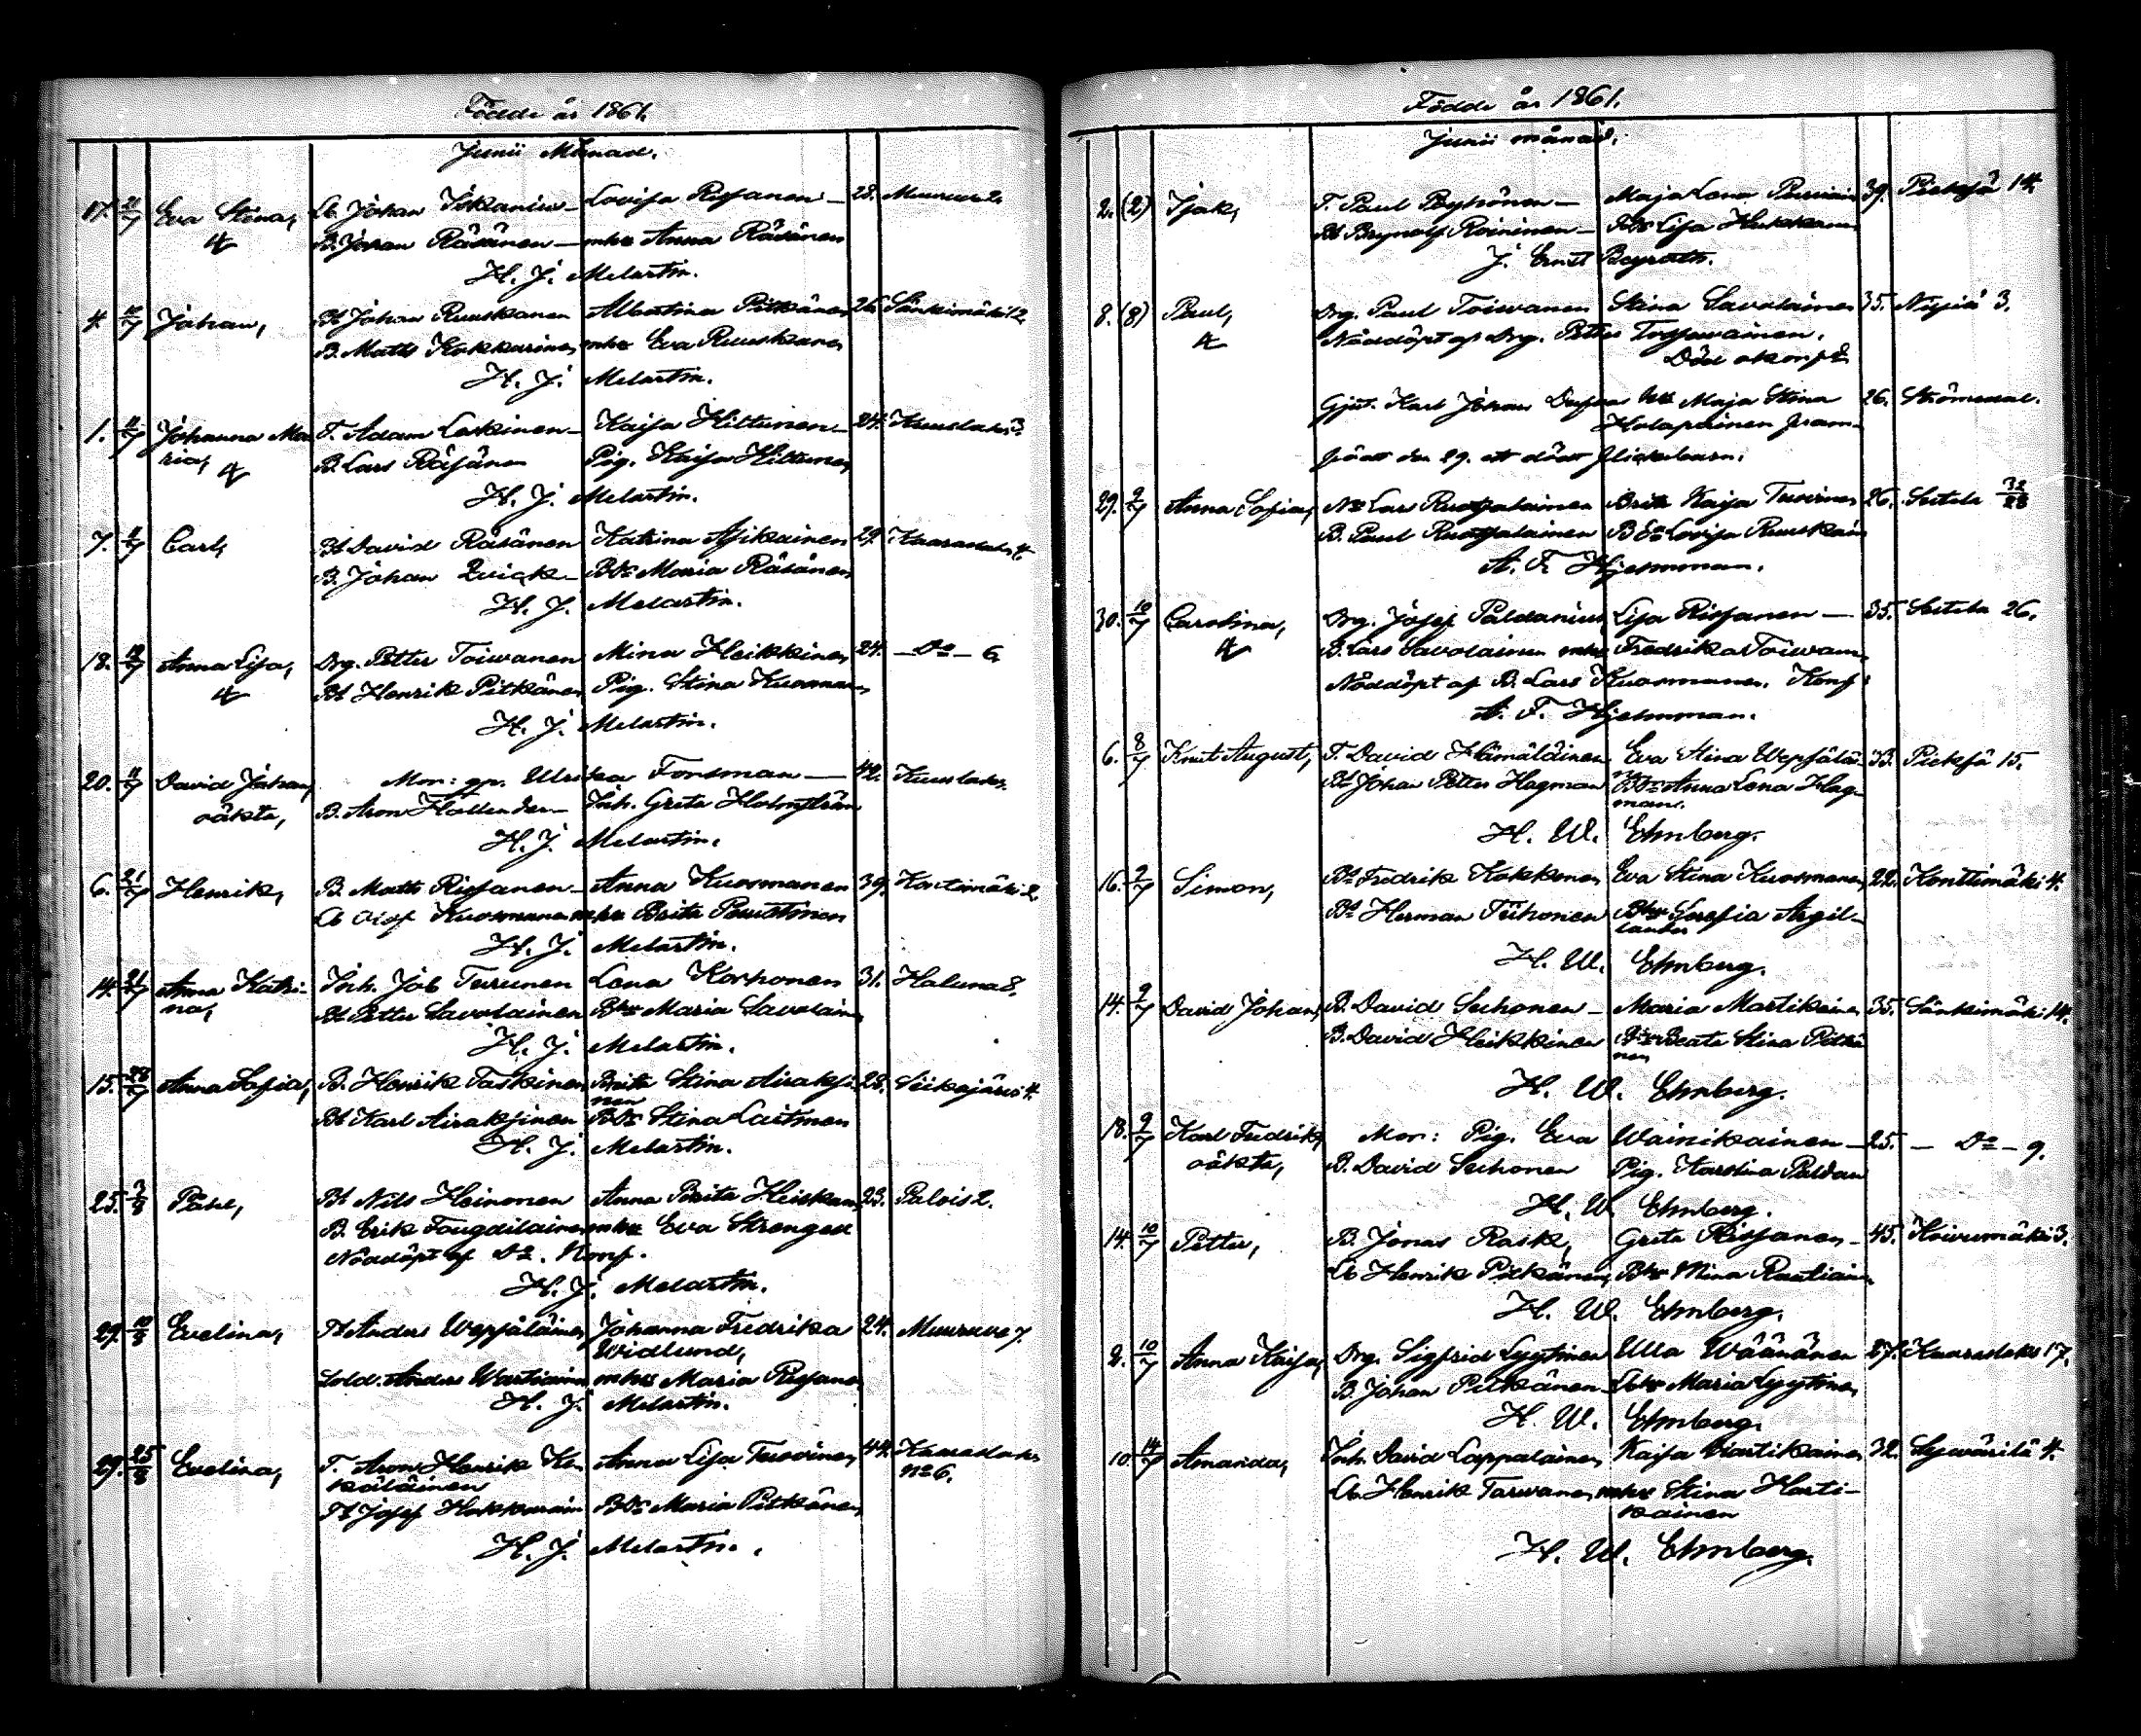 Födde år 1861.
Junii Månad.
17. 11/7 Eva Stina, Johan Lovisa Rissanen 28. Muuruves 2.
B. Johan Räsänen mhu Anna Räsänen
H. J. Melartin.
4. 11/7 Johan, Bd Johan Ruuskanen Albertina Pitkänen 26. Sänkimäki 12
B. Matts Kokkarinen mhu Eva Ruuskanen
H. J. Melartin.
1. 11/7 Johanna Ma T. Adam Laskinen Kaisa Hiltunen 24. Kuuslaks 3.
ria, B. Lars Räsänen Pig. Kaisa Hiltunen
H. J. Melartin.
7. Carl, Bd David Räsänen Katrina Asikainen 29. Kaaraslaks 4.
B. Johan Qvick Bdr Maria Räsänen
H. J. Melartin.
18. Anna Lisa, Drg. Petter Toiwanen Mina Heikkinen 24. Do 6.
Bd Henrik Pitkänen Pig. Stina Kuosmanen
H. J. Melartin.
20. 11/7 David Johan, Mor: gv. Ulrika Forsman 42. Kuuslaks.
oäkta, B. Aron Hollender Inh. Greta Holmström
H. J. Melartin.
6. 21/7 Henrik, B. Matts Rissanen Anna Kuosmanen 39. Kontimäki 2.
Olof Kuosmanen mhu Brita Puustinen
H. J. Melartin.
14. 21/7 Anna Katri- Inh. Job Turunen Lena Korhonen 31. Haluna 8.
na, Bd Petter Savolainen Bhu Maria Savolain
H. J. Melartin.
15. 28/7 Anna Sofia, B. Henrik Taskinen Brita Stina Airaksi 28. Siikajärvi 4.
nen
Bd Karl Airaksinen Bdr Stina Laitinen
H. J. Melartin.
25. 3/8 Påhl, Bd Nils Heinonen Anna Brita Heiskan 23. Palois 2.
B. Erik Tougdilainen mhu Eva Strengell
Nöddöpt af Do. Konf.
H. J. Melartin.
29. 10/8 Evelina, Anders Wepsäläinen Johanna Fredrika 24. Muuruves 7.
Widlund,
Sold. Anders Wartiainen mhu Maria Rissanen
H. J. Melartin.
29. 25/8 Evelina, T. Aron Henrik Ke Anna Lisa Tuovinen 44. Kaaraslaks
käläinen No 6.
Josef Hakkarain Bdr Maria Pitkänen
H. J. Melartin.
Födde år 1861.
Junii månad.
2. (2) Isak, T. Paul Pöyhönen Maja Lena 39. Pieksä 14.
Bd Brynolf Roininen Lisa Hukkanen
J. Ernst Bergroth.
8. (8) Paul, Drg. Paul Toiwanen Stina Savolainen 35. Nilsiä 3.
Nöddöpt af Drg. Petter
Död okonf.
Gjut. Karl Johan Maja Stina 26. Strömsdal.
Holapainen fram-
född den 29. ett dödt flickebarn.
29. 9/7 Anna Sofia, Lars Ruotsalainen Brita Kaisa Tuovinen 26. Sutela 32/28
B. Paul Ruotsalainen Lovisa Ruuskain
A. F. Hjelmman.
30. 10/7 Carolina, Drg. Josef Paldanius Lisa Rissanen 35. Sutela 26.
B. Lars Savolainen mhu Fredrika Toiwan
Nöddöpt af B. Lars Kuosmanen. Konf.
A. F. Hjelmman.
6. 8/7 Knut August, T. David Hämäläinen Eva Stina Wepsäläi 33. Pieksä 15.
Bd Johan Petter Hagman Anna Lena Hag-
man.
H. W. Ehnberg.
16. 9/7 Simon, Bd Fredrik Kokkonen Eva Stina Kuosmanen 22. Konttimäki 4.
Bd Herman Tiihonen Bhu Sofia Argil-
lander
H. W. Ehnberg.
14. 9/7 David Johan, B. David Suhonen Maria Martikainen 35. Sänkimäki 14.
B. David Heikkinen Beata Stina Pitkä
nen
H. W. Ehnberg.
18. 9/7 Karl Fredrik, Mor: Pig. Eva Wainikainen 25. Do 9.
oäkta, B. David Suhonen Pig. Karolina Paldan
H. W. Ehnberg.
14. 10/7 Petter, B. Jonas Rask, Greta Rissanen 45. Koivumäki 3.
Henrik Pitkänen Bhu Mina Rautiain
H. W. Ehnberg.
2. 10/7 Anna Kaisa, Drg. Sigfrid Lyytinen Ulla Wäänänen 27. Kaaraslaks 17.
B. Johan Pitkänen Maria Lyytinen
H. W. Ehnberg.
10. 14/7 Amanda, Inh. David Lappalainen Kaisa 32. Sywärilä 4.
Henrik Tarwanen mhu Stina Harti-
kainen
H. W. Ehnberg.